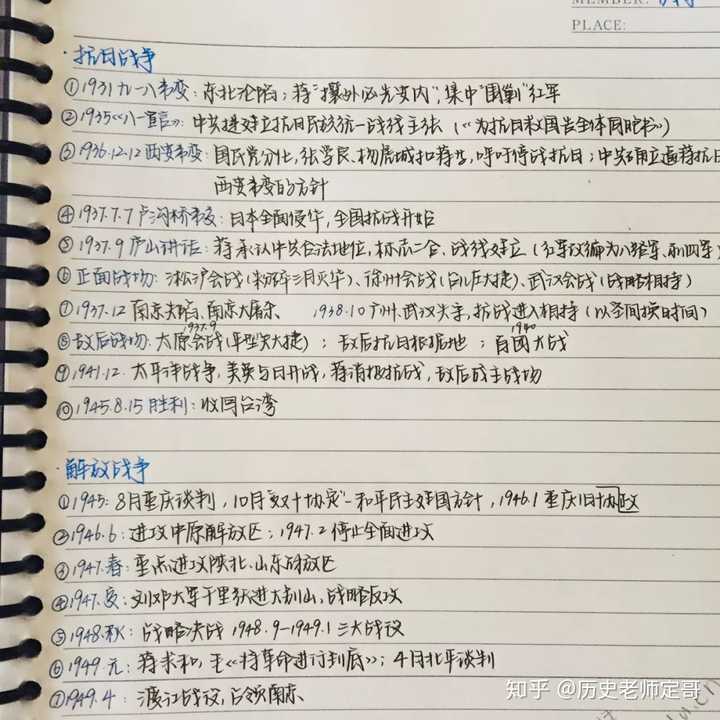 MEMBER:
PLACE:
·抗日战争
①1931九一八事变：东北沦陷；蒋"攘外必先安内"，集中"围剿"红军
②1935《八一宣言》：中共提建立抗日民族统一战线主张（《为抗日救国告全体同胞书》）
③1936.12.12西安事变：国民党分化，张学良、杨虎城扣蒋，呼吁停战抗日；中共确立逼蒋抗日
西安事变的方针
④1937.7.7卢沟桥事变：日本全面侵华，全国抗战开始
⑤1937.9庐山讲话：蒋承认中共合法地位，标志二合、战线建立（红军改编为八路军、新四军）
⑥正面战场：淞沪会战（粉碎三月灭华）、徐州会战（台儿庄大捷）、武汉会战（战略相持）
⑦1937.12南京失陷、南京大屠杀 1938.10广州、武汉失守，抗战进入相持（以空间换时间）
1937.9 1940
⑧敌后战场：太原会战（平型关大捷）；敌后抗日根据地；百团大战
⑨1941.12.太平洋战争，美英与日开战，蒋消极抗战，敌后成主战场
⑩1945.8.15胜利：收回台湾
·解放战争
①1945：8月重庆谈判，10月"双十协定"-和平民主建国方针，1946.1重庆旧政协
②1946.6：进攻中原解放区；1947.2停止全面进攻
③1947.春：重点进攻陕北、山东解放区
④1947.夏：刘邓大军千里跃进大别山，战略反攻
⑤1948.秋：战略决战 1948.9-1949.1三大战役
⑥1949.元：蒋求和，毛《将革命进行到底》；4月北平谈判
⑦1949.4：渡江战役，占领南京
知乎 @历史老师定哥